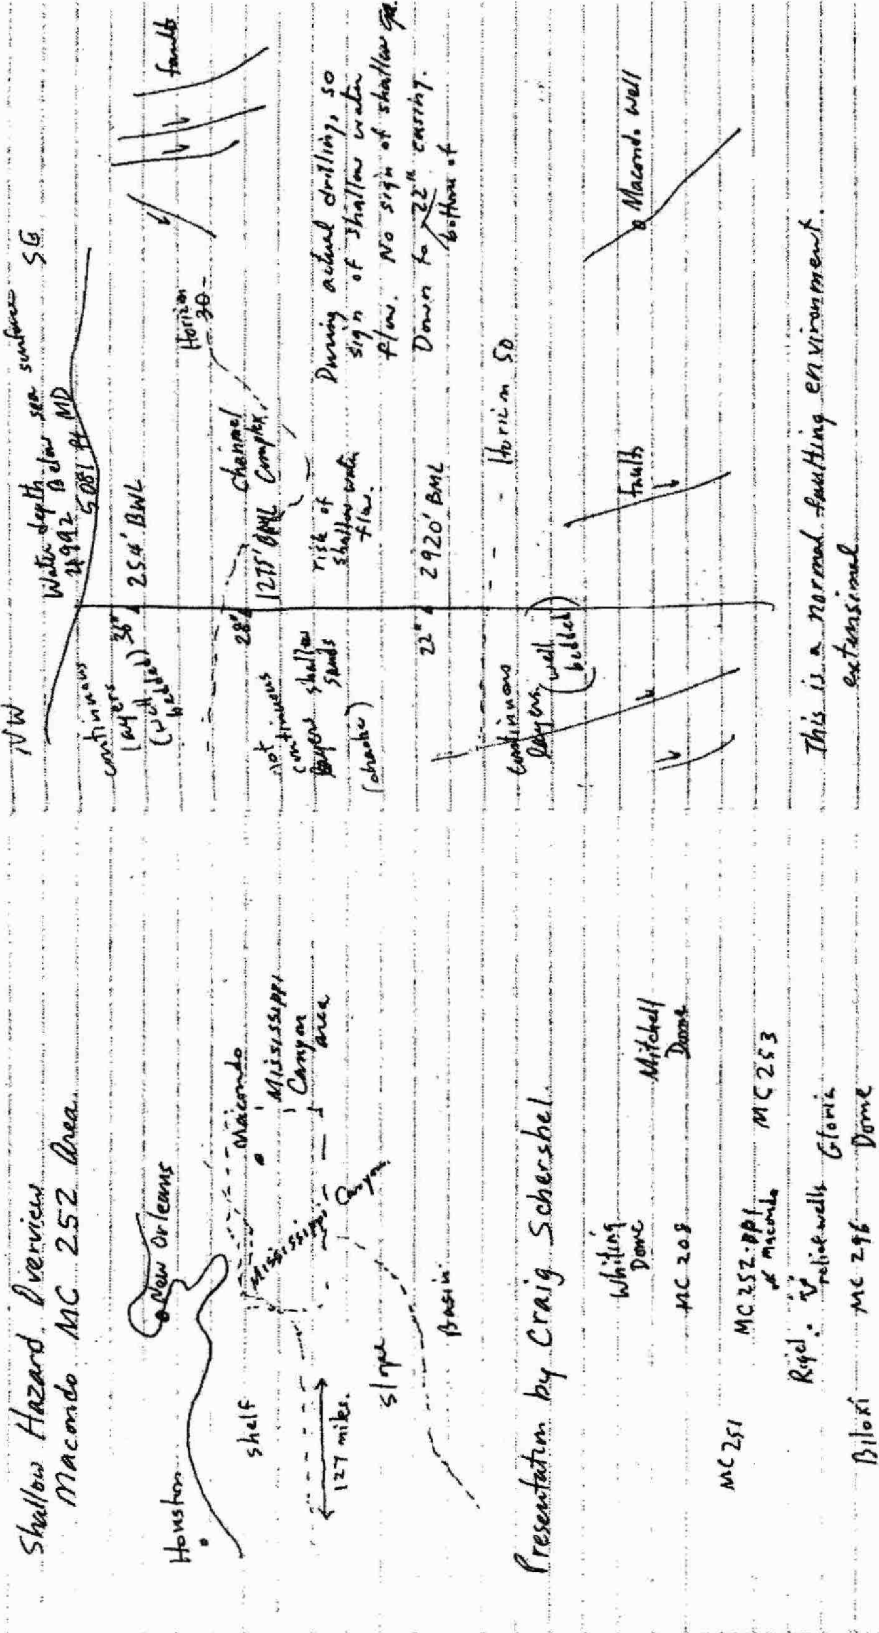 Shallow Hazard Overview
Macondo MC 252 Area.
Houston
New Orleans
shelf
Macondo
Mississippi
Canyon
Mississippi
Canyon
area
127 miles.
slope
Basin
Presentation by Craig Schershel
Whiting
Dome
Mitchell
Dome
MC 208
MC 251
MC 252
macondo
MC 253
Rigel
relief wells
Gloria
Dome
Biloxi
MC 296
NW
Water depth
Below sea surface
SE
4992
5081 ft MD
continuous
layers
(well
bedded)
36"
254' BWL
faults
Horizon
30
28"
1275' BML
channel
complex
not
continuous
layers shallow
sands
(chaotic)
risk of
shallow water
flow.
During actual drilling, so
sign of shallow water
flow. No sign of shallow gas.
Down to 22" casing.
bottom of
22"
2920' BML
Horizon 50
continuous
layers
(well
bedded)
faults
Macondo well
This is a normal faulting environment.
extensional